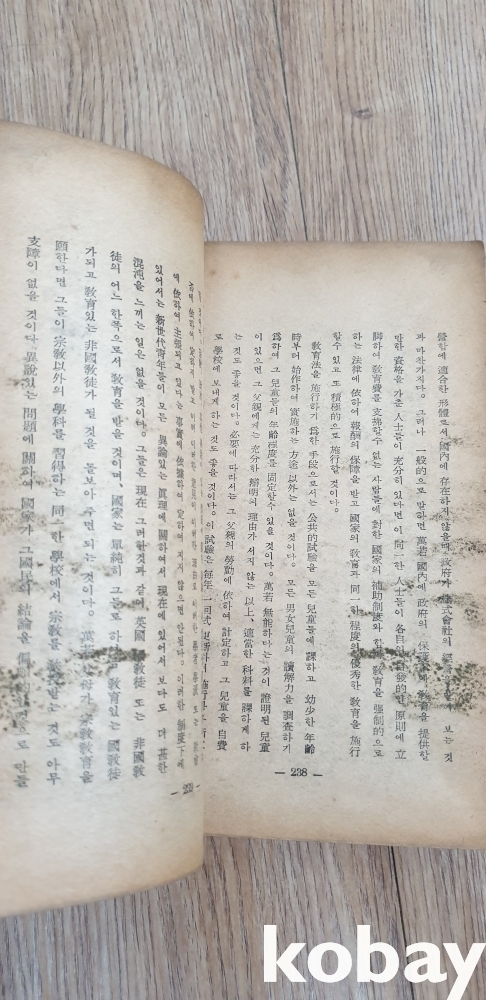 營함에 適合한 形體로서 國內에 存在하지 않을때 政府가 株式會社의 보는 것
과 마찬가지다. 그러나 一般的으로 말하면 萬若 國內에 政府의 敎育을 提供할
만한 資格을 가춘 人士들이 充分히 있다면 이 同一한 人士들이 各自의 自發的인 原則에 立
脚하여 敎育費를 支拂할수 없는 사람들에 對한 國家의 補助制度와 敎育을 强制的으로
하는 法律에 依하여 報酬의 保障을 받고 國家의 敎育과 同一한 程度의 優秀한 敎育을 施行
할수 있고 또 積極的으로 施行할 것이다.
敎育法을 施行하기 爲한 手段으로서는 公共的試驗을 모든 兒童들에 課하고 幼少한 年齡
時부터 始作하여 實施하는 方途 以外는 없을 것이다. 모든 男女兒童의 讀解力을 調査하기
爲하여 그 兒童들의 年齡程度를 固定할수 있을 것이다. 萬若 無能하다는것이 證明된 兒童
이 있으면 그 父親에게는 充分한 辯明의 理由가 서지 않는 以上, 適當한 科料를 課하게 하
는 것도 좋을 것이다. 必要에 따라서는 그 父親의 勞動에 依하여 計定하고 그 兒童을 自費
로 學校에 보내게 하는 것도 좋을 것이다. 이 試驗은 每年 一回式
— 238 —
에 依하여 主張되고 있다는 事實에 依據하여 않으면 안된다. 이러한 制度下에
있어서는 新世代青年들이 모든 異論있는 眞理에 關하여서 現在에 있어서 보다도 더 甚한
混沌을 느끼는 일은 없을 것이다. 그들은 現在 그러한것과 같이 英國 敎徒 또는 非國敎
徒의 어느 한쪽으로서 敎育을 받을 것이며, 國家는 單純히 그들로 敎育있는 國敎徒
가되고 敎育있는 非國敎徒가 될 것을 돌보아 주면 되는 것이다. 萬若 敎育을
願한다면 그들이 宗敎以外의 學科를 習得하는 同一한 學校에서 宗敎를 받는 것도 아무
支障이 없을 것이다. 異說있는 問題에 關하여 國家가 그國民의 結論을 만들
kobay